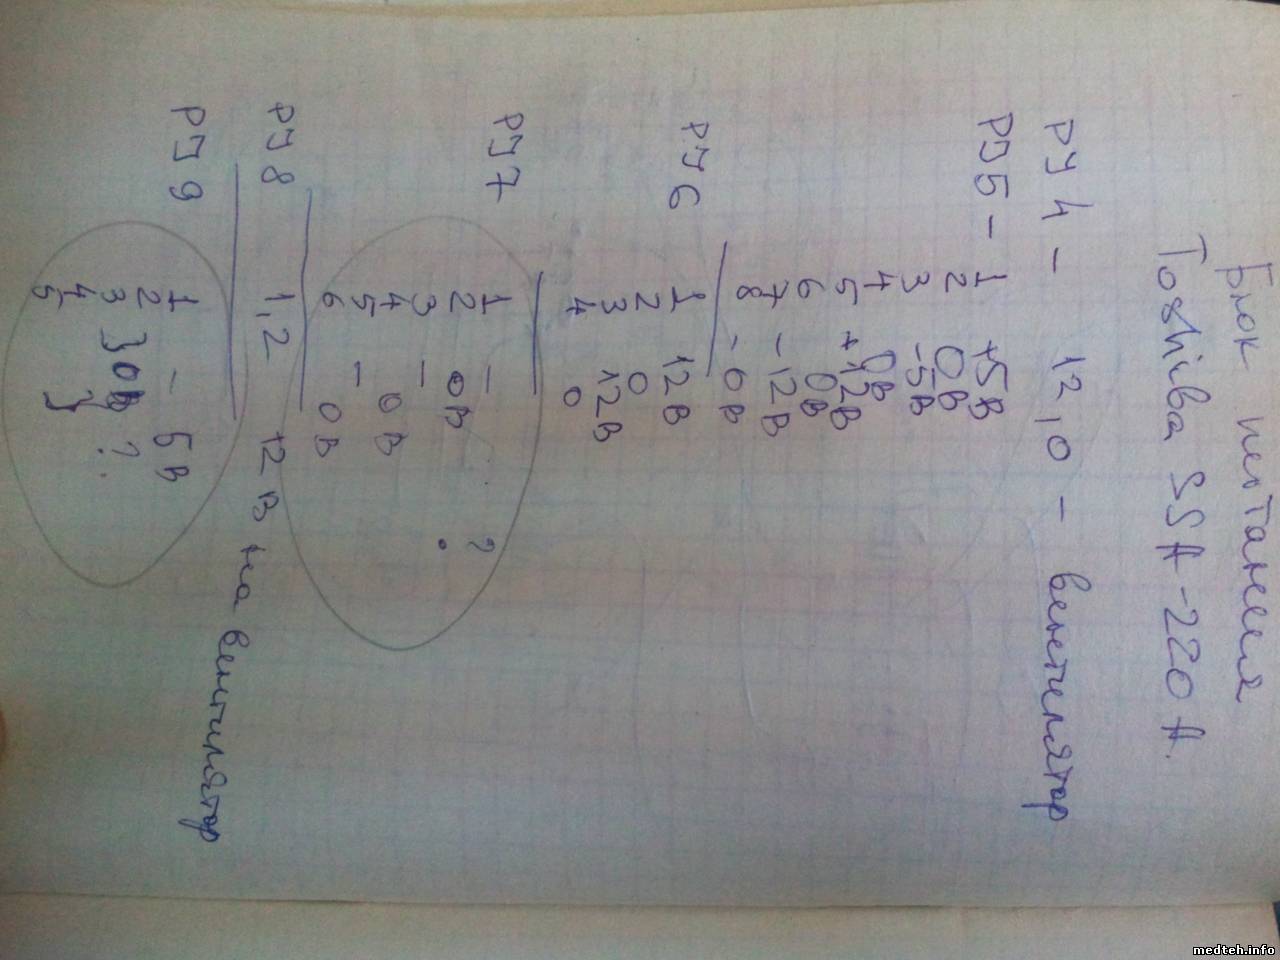 Блок питания
Toshiba SSA-220A.
PJ4 - 12,0 - вентилятор
PJ5 - 1 +5В
2 0В
3 -5В
4 0В
5 +12В
6 0В
7 -12В
8 - 0В
PJ6 1 12В
2 0
3 12В
4 0
PJ7 1 - ?
2 - 0В
3 -
4 - 0В
5 -
6 0В
PJ8 1,2 12В на вентилятор
PJ9 1 - 5В
2
3 } 0В ?
4
5 }
medteh.info